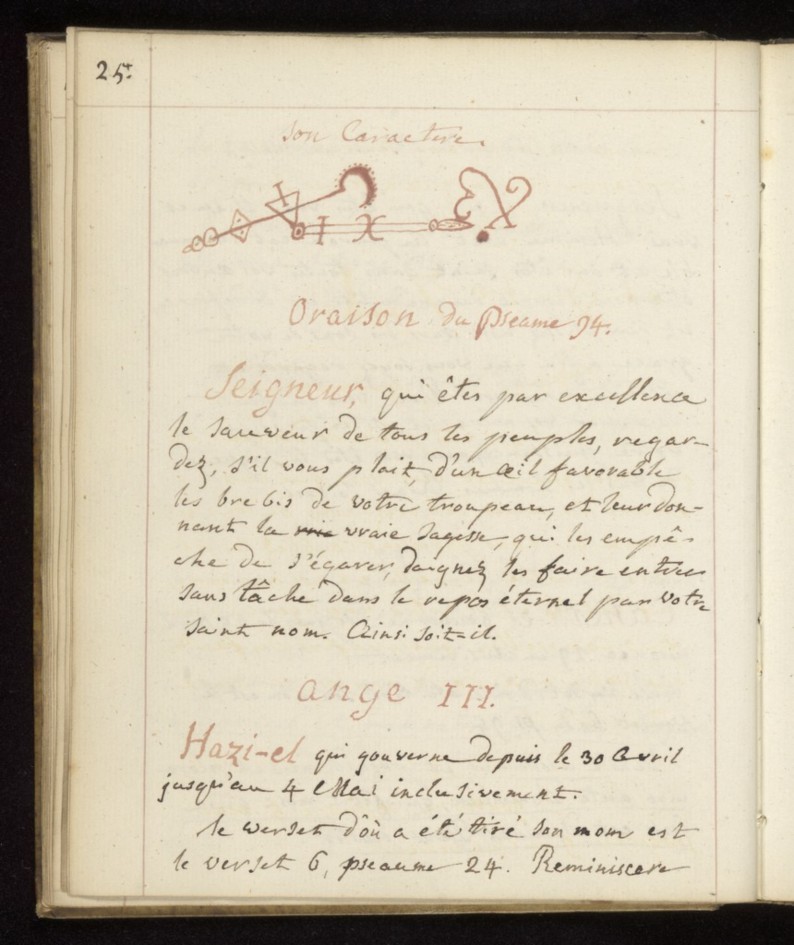 25.
Son Caractere.
Oraison du Pseaume 94.
Seigneur, qui êtes par excellence
le Sauveur de tous les peuples, regar-
dez, s'il vous plait, d'un œil favorable
les brebis de votre troupeau, et leur don-
nant la vraie sagesse, qui les empê-
che de s'égarer, daignez les faire entrer
sans tâche dans le repos éternel par votre
saint nom. Ainsi soit-il.
ange III.
Hazi-el qui gouverne depuis le 30 Avril
jusqu'au 4 Mai inclusivement.
le verset d'où a été tiré son nom est
le verset 6, pseaume 24. Reminiscere